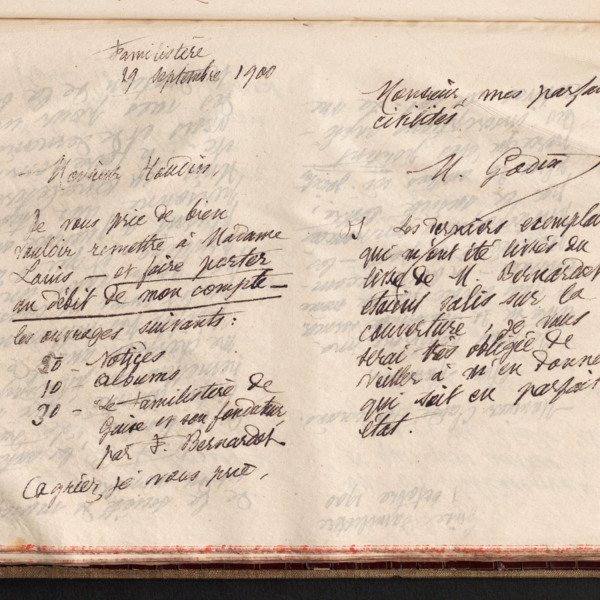 Familistère
29 septembre 1900
Monsieur
Je vous prie de bien
vouloir remettre à Madame
Louis – et faire porter
au débit de mon compte –
les ouvrages suivants :
20 – Notices
10 – albums
30 – Le Familistère de
Guise et son fondateur,
par F. Bernardot
Agréer, je vous prie,
Monsieur, mes parfai
civilités
M. Godin
Les derniers exemplai
qui m'ont été livrés du
livre de M. Bernardot
étaient salis sur la
couverture, je vous
serai très obligée de
veiller à m'en donne
qui soit en parfait
état.